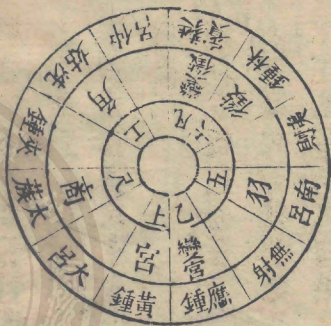 黃鍾
大呂
太蔟
夾鍾
姑洗
仲呂
蕤賓
林鍾
夷則
南呂
無射
應鍾
宮
商
角
變徵
徵
羽
變宮
上
尺
工
凡
六
五
乙